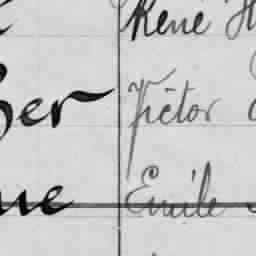 René H
er Victor
me Emile